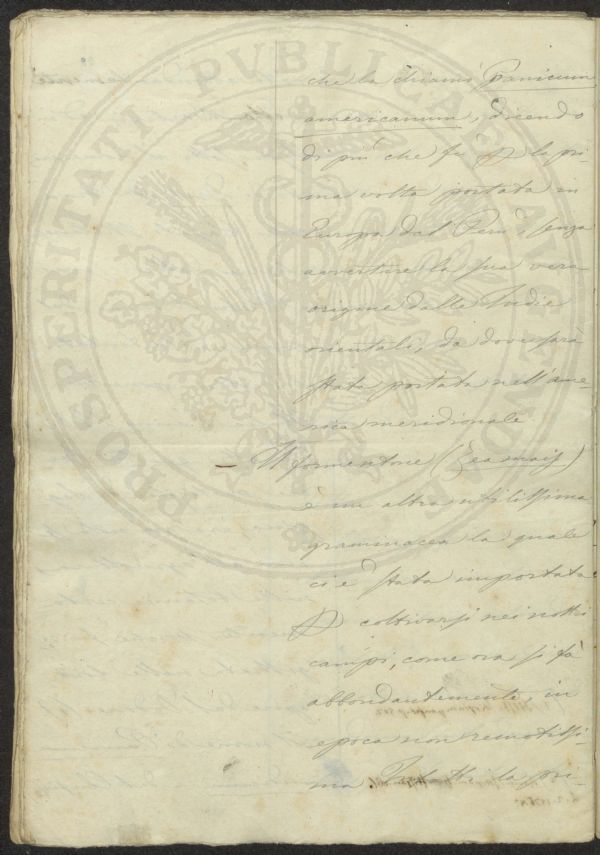 che la chiamò Panicum
americanum, dicendo
di più che fù la pri
ma volta portata in
Europa dal Perù, senza
avvertire la sua vera
origine dalle Indie
orientali, da dove sarà
stata portata nell'ame-
rica meridionale
– Il formentone (Zea mais)
è un altra utilissima
graminacea la quale
ci è stata importata
coltivarsi nei nostri
campi, come ora si fà
abbondantemente, in
epoca non remotissi-
ma. Infatti la pri-
PROSPERITATI PVBLICAE AVGENDAE